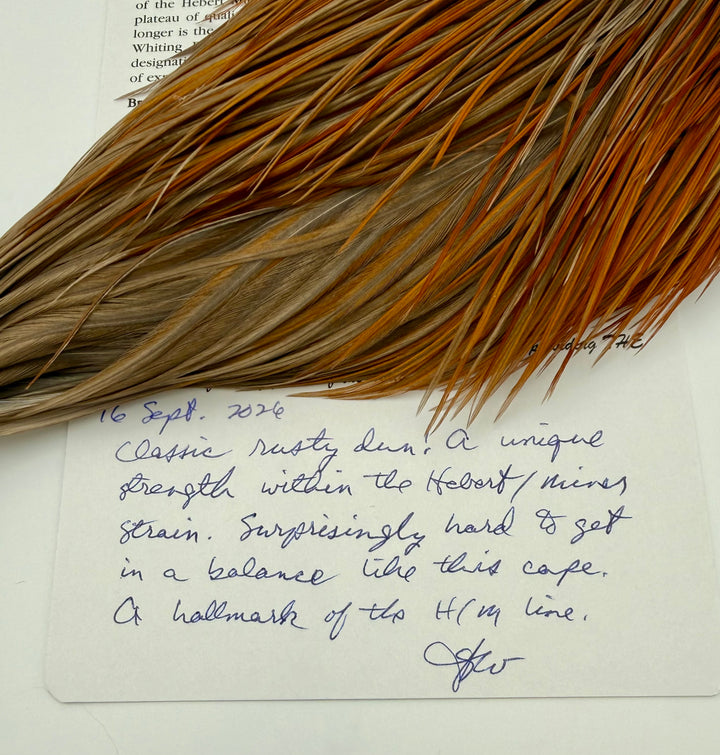 of the Hebert
plateau of
longer is the
Whiting
designati
of ex
THE
16 Sept. 2026
Classic rusty dun! A unique
strength within the Hebert/Miner
strain. Surprisingly hard to get
in a balance like this cape.
A hallmark of the H/M line.